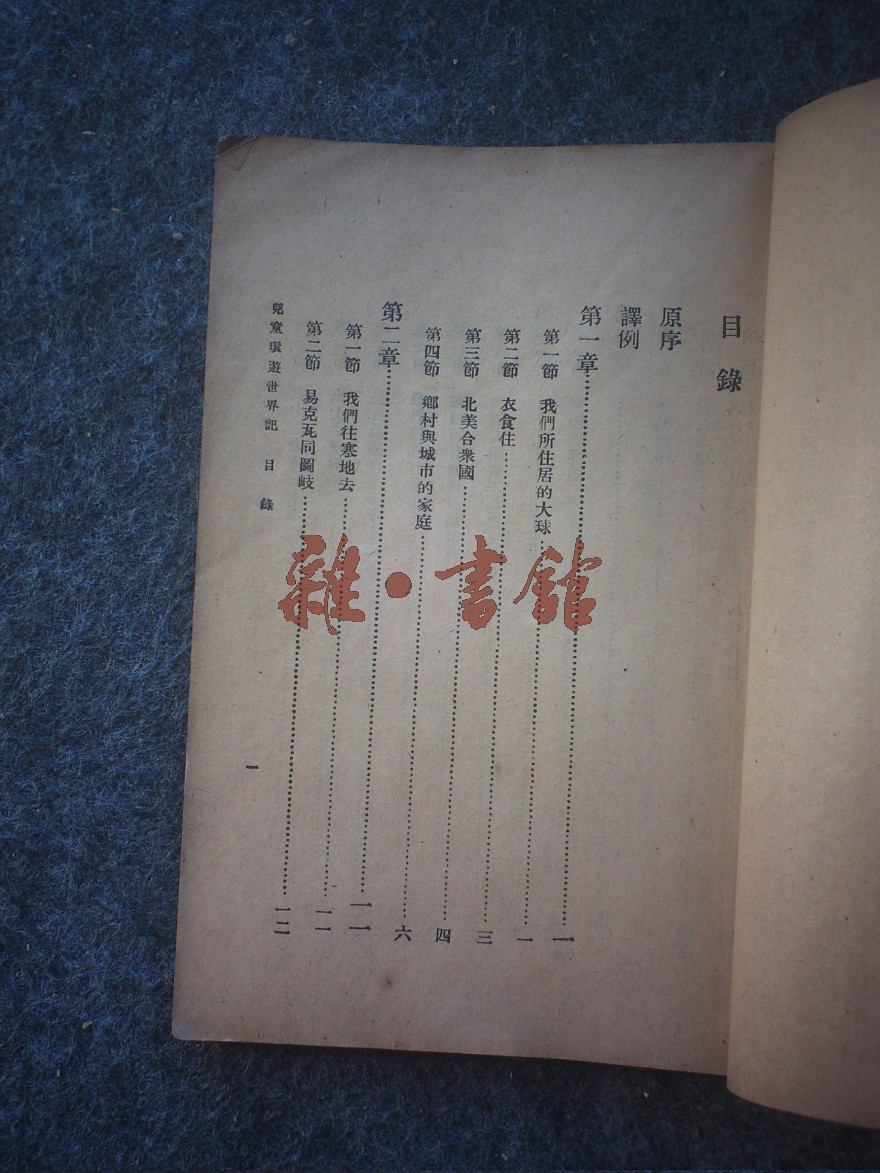 目錄
原序
譯例
第一章……一
第一節 我們所住居的大球……一
第二節 衣食住……三
第三節 北美合衆國……四
第四節 鄉村與城市的家庭……六
第二章……一一
第一節 我們往寒地去……一一
第二節 易克瓦同圖岐……一二
兒童環遊世界記 目錄
一
雜·書館